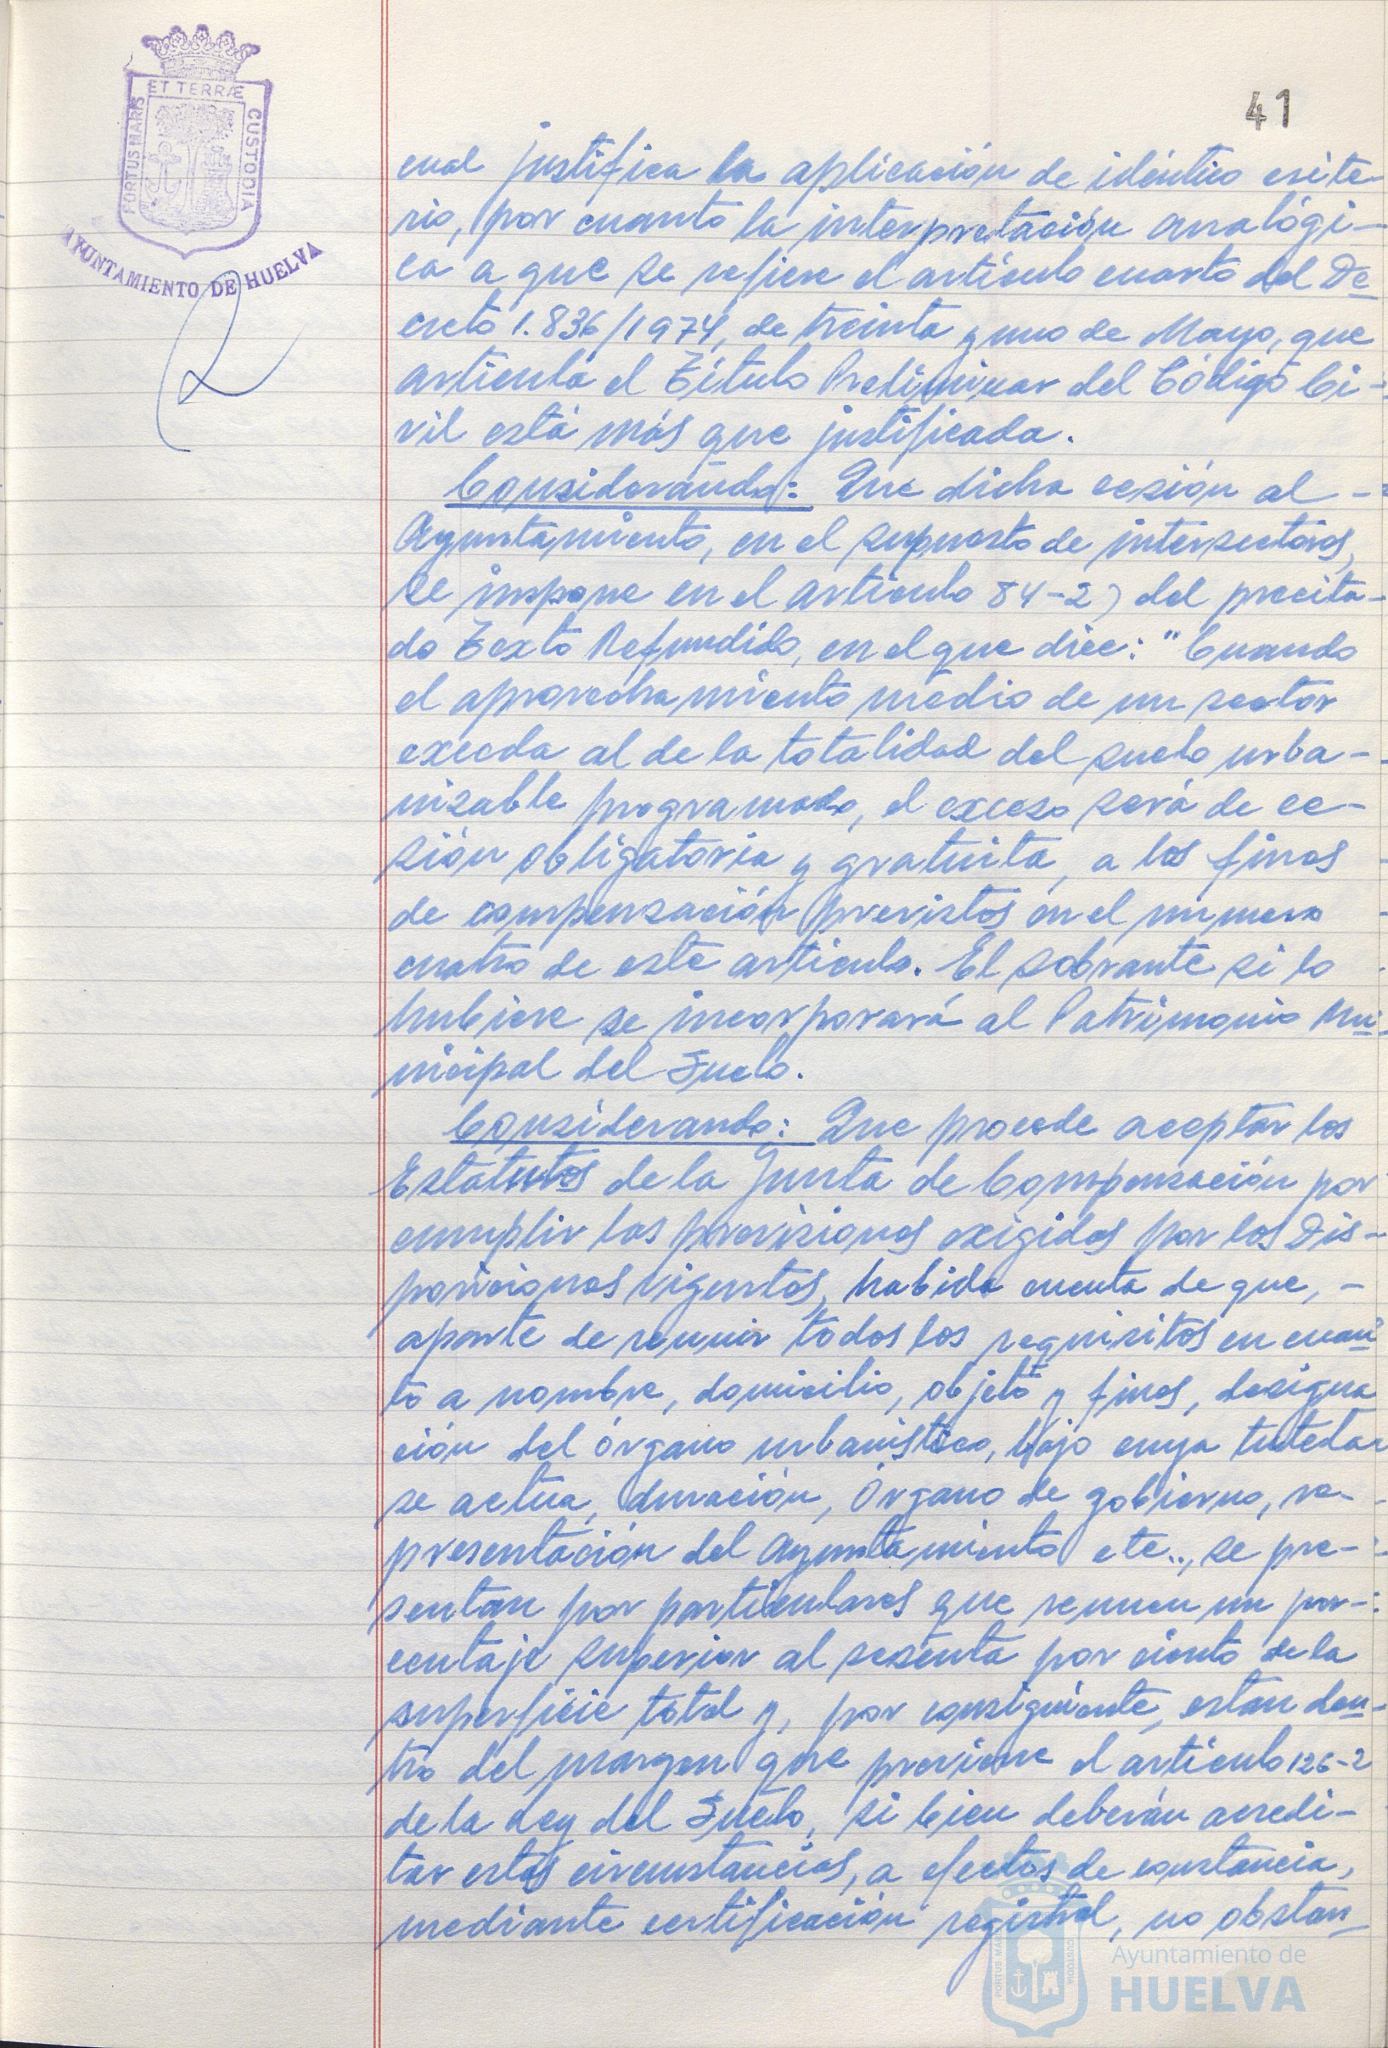 ET TERRÆ
PORTUS MARIS
CUSTODIA
AYUNTAMIENTO DE HUELVA
41
cual justifica la aplicación de idéntico crite-
rio, por cuanto la interpretación analógi-
ca a que se refiere el artículo cuarto del De
creto 1.836/1974, de treinta y uno de Mayo, que
articula el Título Preliminar del Código Ci-
vil está más que justificada.
Considerando: Que dicha cesión al -
Ayuntamiento, en el supuesto de intersectores,
se impone en el artículo 84-2) del precita-
do Texto Refundido, en el que dice: "Cuando
el aprovechamiento medio de un sector
exceda al de la totalidad del suelo urba-
nizable programado, el exceso será de ce-
sión obligatoria y gratuita, a los fines
de compensación previstos en el número
cuatro de este artículo. El sobrante si lo
hubiere se incorporará al Patrimonio Mu
nicipal del Suelo.
Considerando: Que procede aceptar los
Estatutos de la Junta de Compensación por
cumplir las previsiones exigidas por las Dis-
posiciones vigentes, habida cuenta de que, -
aparte de reunir todos los requisitos en cuan
to a nombre, domicilio, objeto y fines, designa
ción del órgano urbanístico, bajo cuya tutela
se actúa, duración, Órgano de gobierno, re-
presentación del Ayuntamiento etc.., se pre-
sentan por particulares que reunen un por-
centaje superior al sesenta por ciento de la
superficie total y, por consiguiente, estan den
tro del margen que previene el artículo 126-2
de la Ley del Suelo, si bien deberán acredi-
tar estas circunstancias, a efectos de constancia,
mediante certificación registral, no obstan
PORTUS MARIS
CUSTODIA
Ayuntamiento de
HUELVA